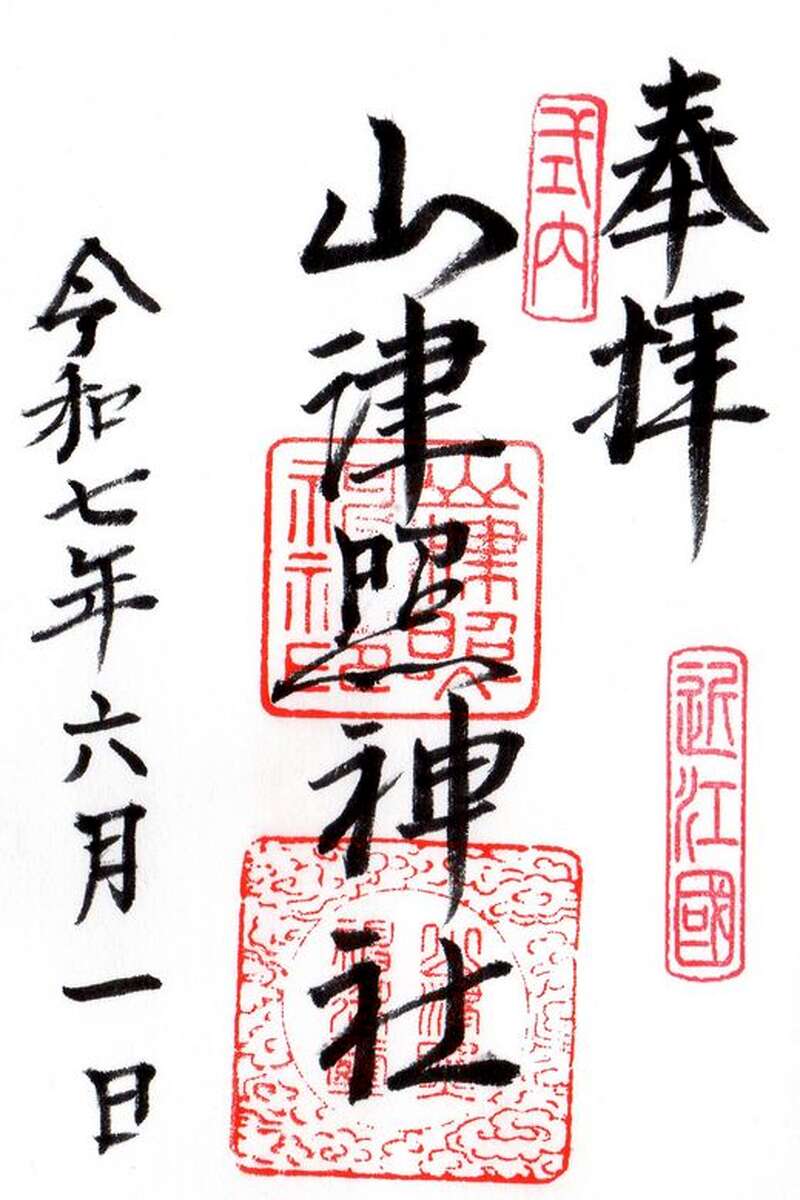 奉拝
式内
近江國
山津照神社
山津照神社印
令和七年六月一日